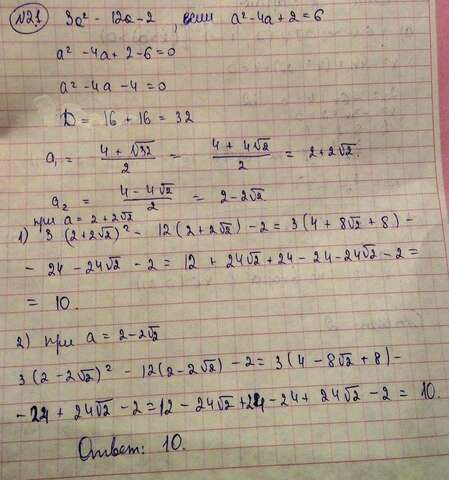 №21 3a² - 12a - 2, если a² - 4a + 2 = 6
a² - 4a + 2 - 6 = 0
a² - 4a - 4 = 0
D = 16 + 16 = 32
a₁ = (4 + √32)/2 = (4 + 4√2)/2 = 2 + 2√2.
a₂ = (4 - 4√2)/2 = 2 - 2√2.
при a = 2 + 2√2
1) 3 (2 + 2√2)² - 12 (2 + 2√2) - 2 = 3 (4 + 8√2 + 8) -
- 24 - 24√2 - 2 = 12 + 24√2 + 24 - 24 - 24√2 - 2 =
= 10.
2) при a = 2 - 2√2
3 (2 - 2√2)² - 12 (2 - 2√2) - 2 = 3 (4 - 8√2 + 8) -
- 24 + 24√2 - 2 = 12 - 24√2 + 24 - 24 + 24√2 - 2 = 10.
Ответ: 10.